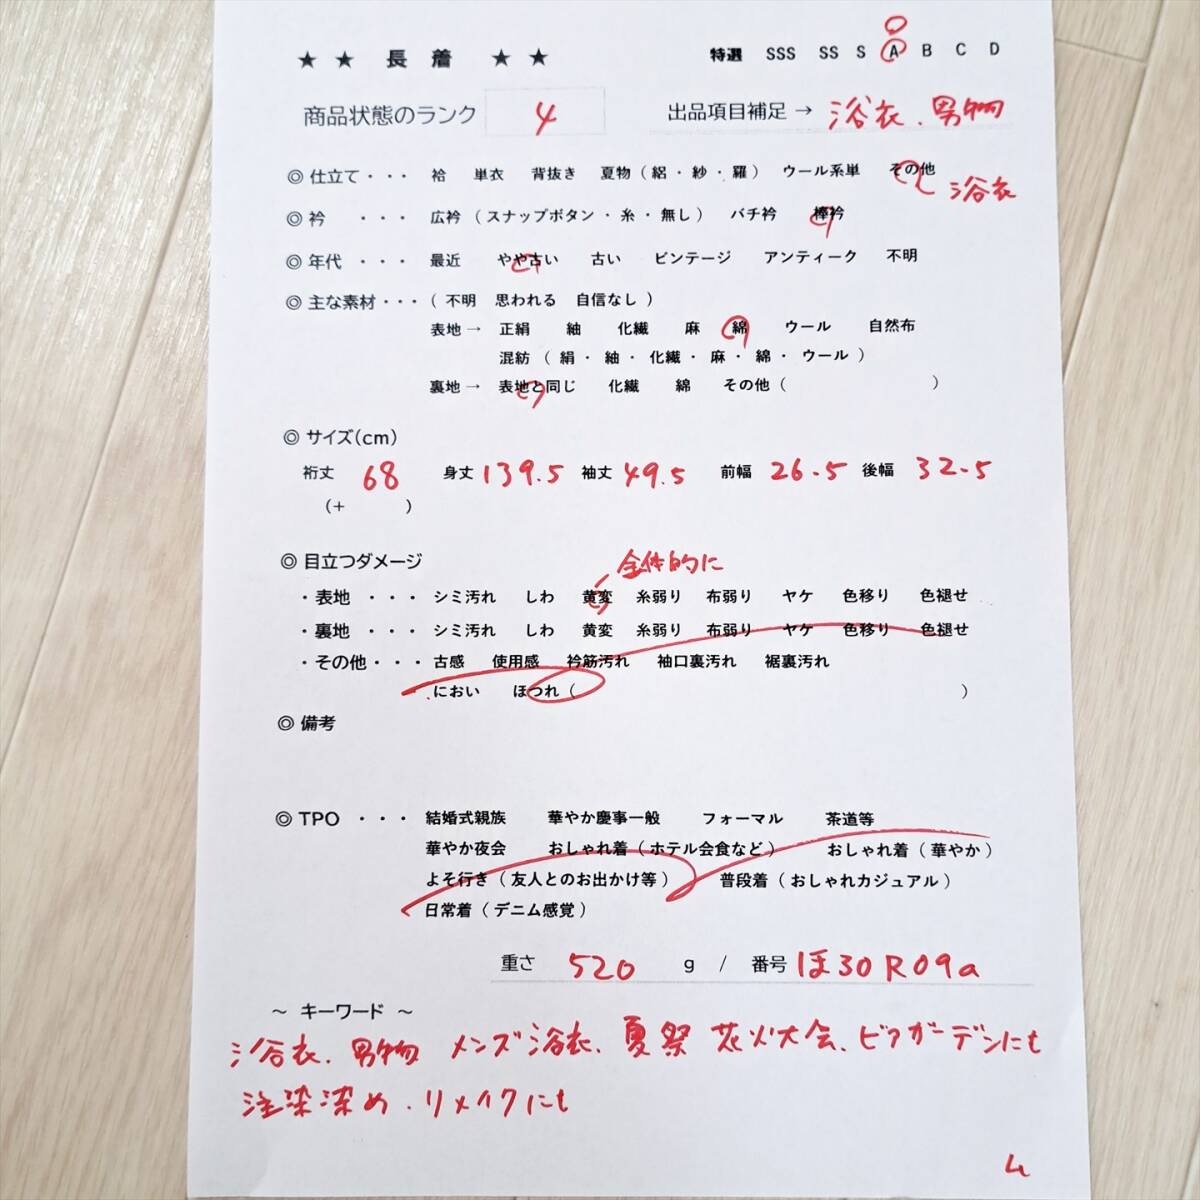 ★ ★ 長 着 ★ ★ 特選 SSS SS S A B C D
商品状態のランク 4 出品項目補足 → 浴衣、男物
◎ 仕立て・・・ 袷 単衣 背抜き 夏物 ( 絽 ・ 紗 ・ 羅 ) ウール系単 その他 浴衣
◎ 衿 ・・・ 広衿 ( スナップボタン ・ 糸 ・ 無し ) バチ衿 棒衿
◎ 年代 ・・・ 最近 やや古い 古い ビンテージ アンティーク 不明
◎ 主な素材・・・ ( 不明 思われる 自信なし )
表地 → 正絹 紬 化繊 麻 綿 ウール 自然布
混紡 ( 絹 ・ 紬 ・ 化繊 ・ 麻 ・ 綿 ・ ウール )
裏地 → 表地と同じ 化繊 綿 その他 ( )
◎ サイズ(cm)
裄丈 68 身丈 139.5 袖丈 49.5 前幅 26.5 後幅 32.5
(+ )
◎ 目立つダメージ 全体的に
・表地 ・・・ シミ汚れ しわ 黄変 糸弱り 布弱り ヤケ 色移り 色褪せ
・裏地 ・・・ シミ汚れ しわ 黄変 糸弱り 布弱り ヤケ 色移り 色褪せ
・その他・・・ 古感 使用感 衿筋汚れ 袖口裏汚れ 裾裏汚れ
におい ほつれ ( )
◎ 備考
◎ TPO ・・・ 結婚式親族 華やか慶事一般 フォーマル 茶道等
華やか夜会 おしゃれ着 ( ホテル会食など ) おしゃれ着 ( 華やか )
よそ行き ( 友人とのお出かけ等 ) 普段着 ( おしゃれカジュアル )
日常着 ( デニム感覚 )
重さ 520 g / 番号 ほ30R09a
～ キーワード ～
浴衣、男物 メンズ浴衣、夏祭 花火大会、ビアガーデンにも
注染染め、リメイクにも